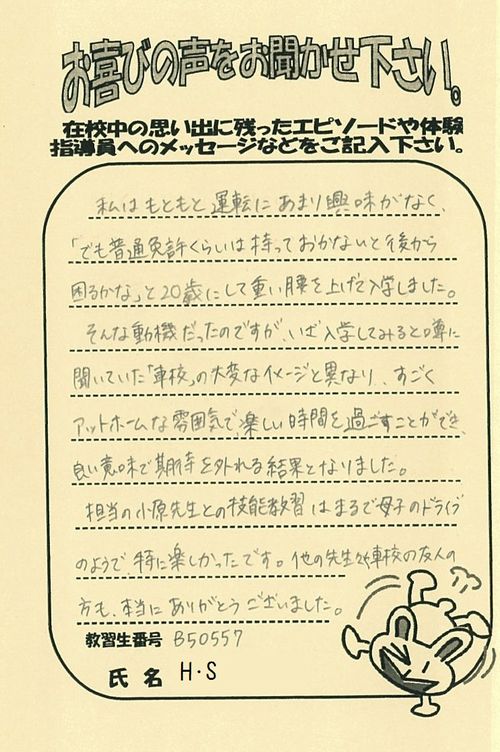 お喜びの声をお聞かせ下さい。
在校中の思い出に残ったエピソードや体験
指導員へのメッセージなどをご記入下さい。
私はもともと運転にあまり興味がなく、
「でも普通免許くらいは持っておかないと後から
困るかな」と20歳にして重い腰を上げて入学しました。
そんな動機だったのですが、いざ入学してみると噂に
聞いていた「車校」の大変なイメージと異なり、すごく
アットホームな雰囲気で、楽しい時間を過ごすことができ、
良い意味で期待を外れる結果となりました。
担当の小原先生との技能教習はまるで母子のドライブ
のようで、特に楽しかったです。他の先生や車校の友人の
方も、本当にありがとうございました。
教習生番号 B50557
氏名 H・S